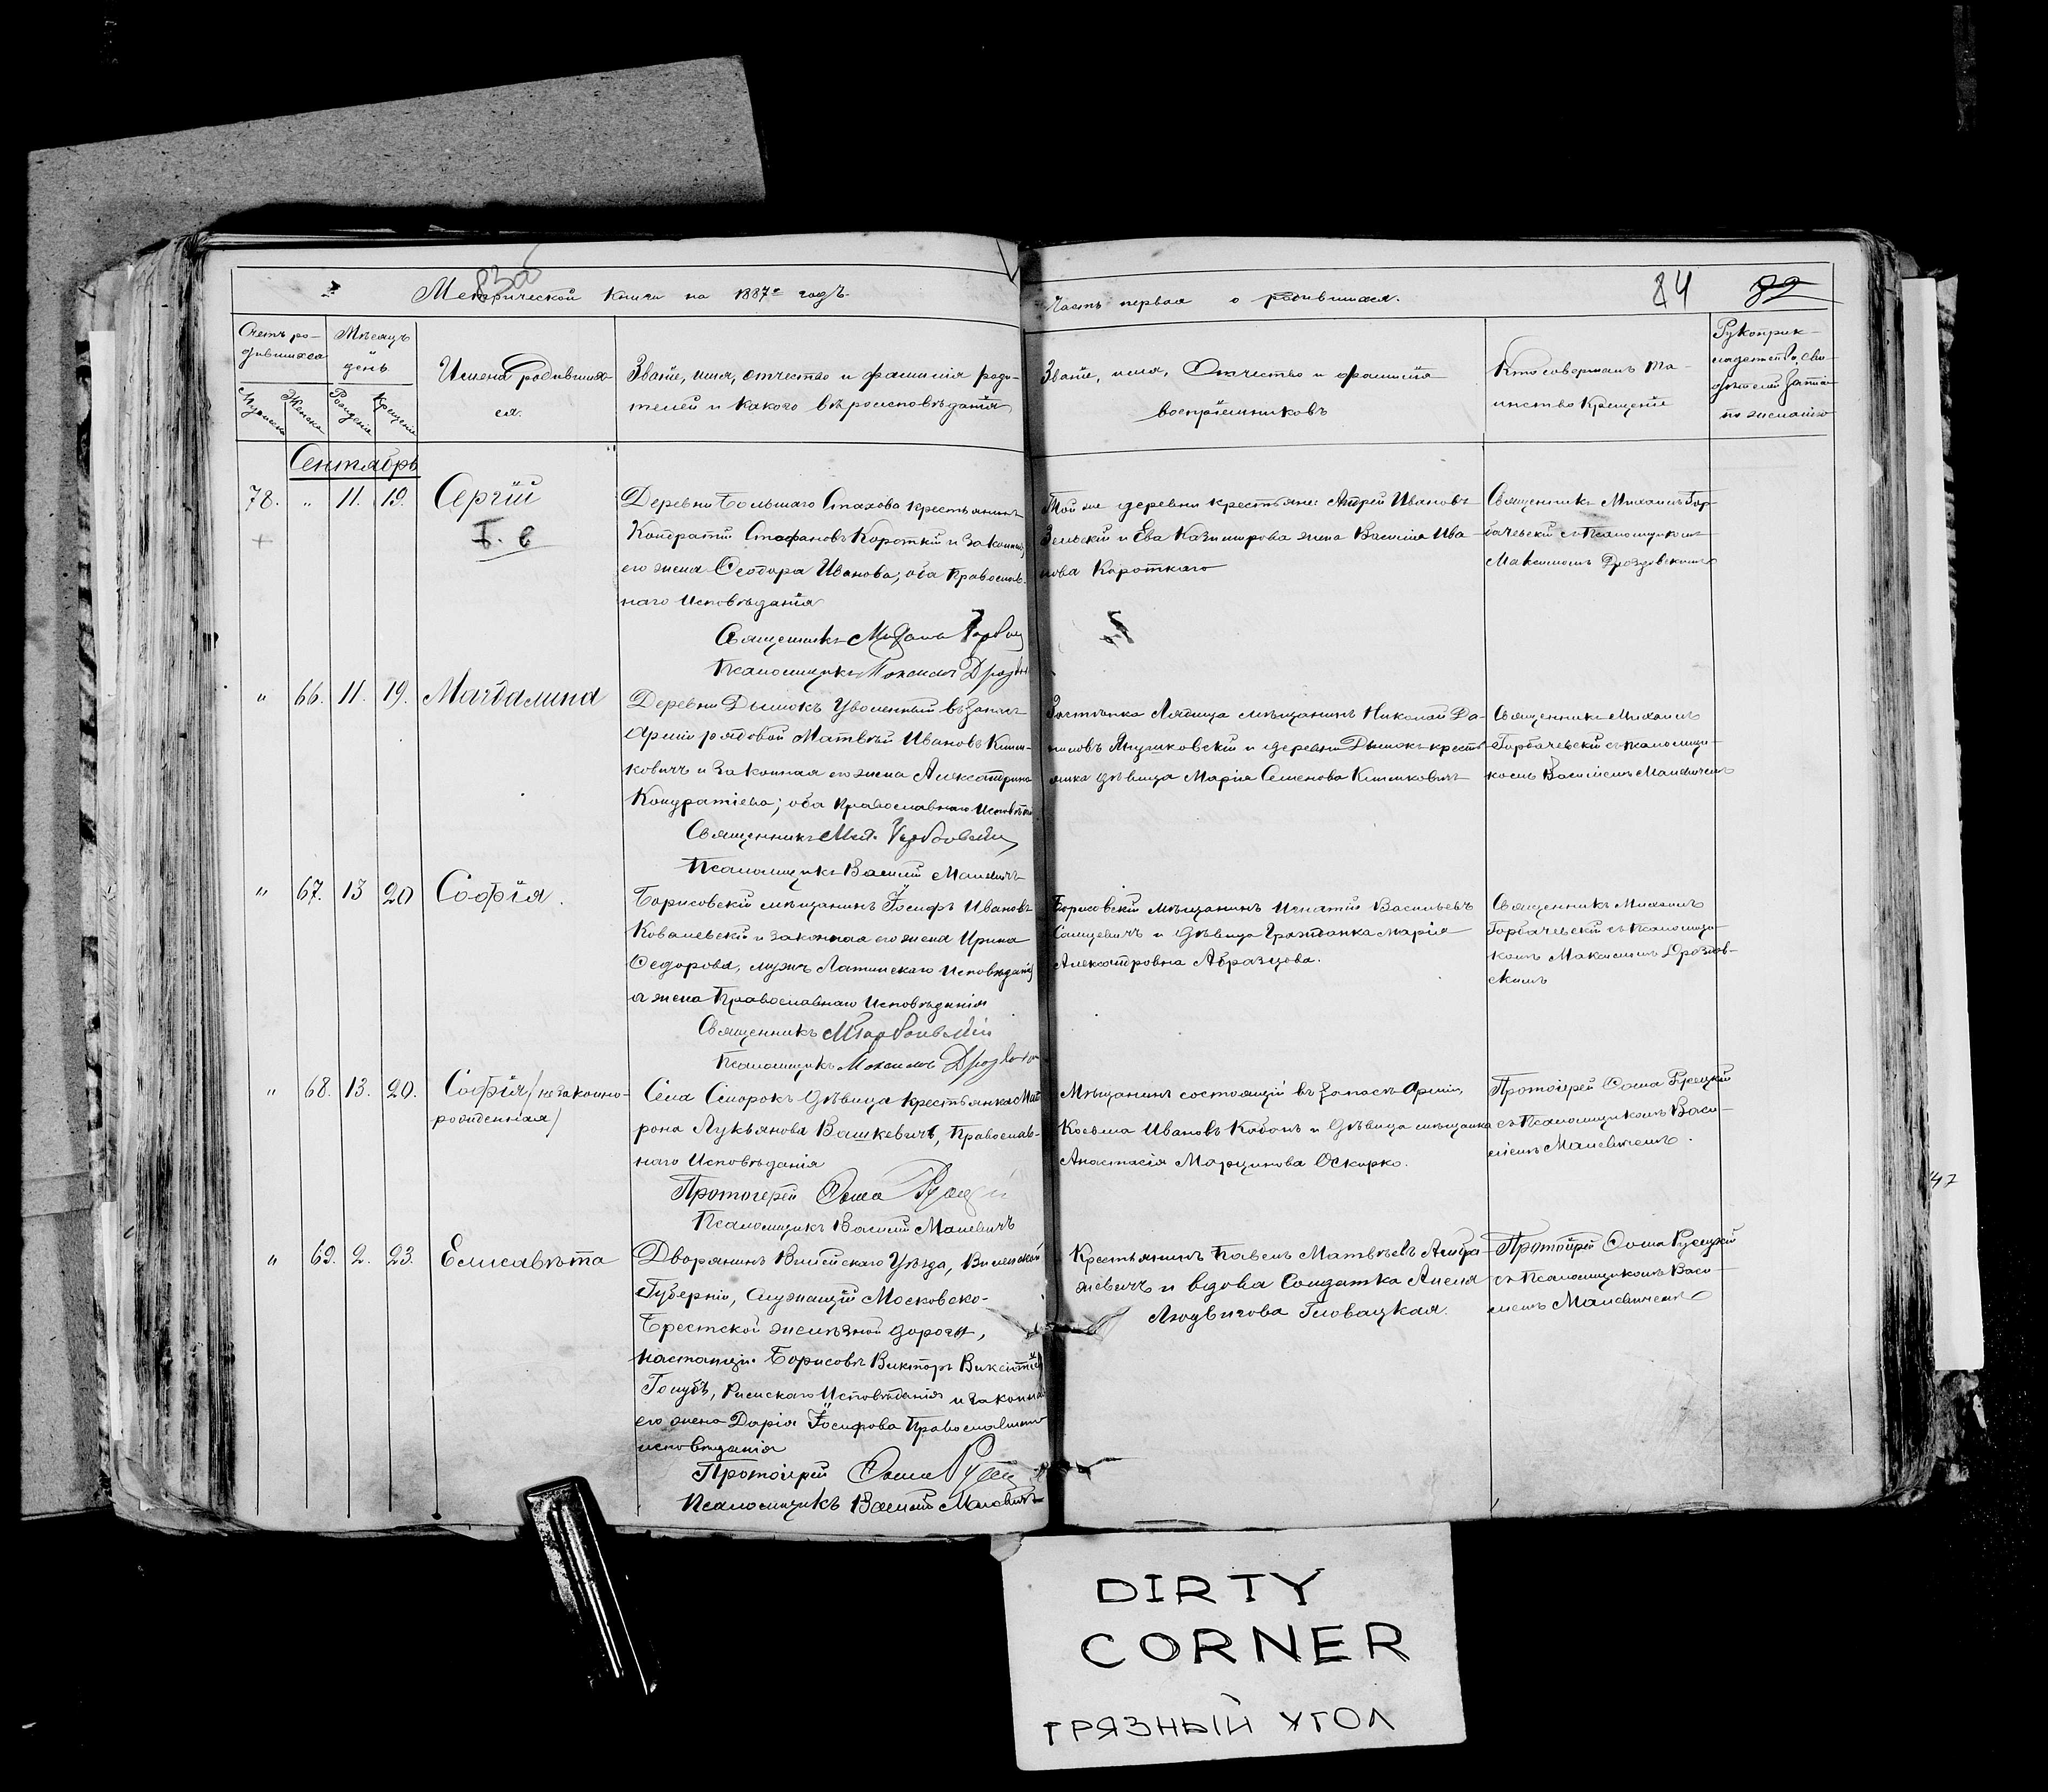 83об
Метрической книги на 1887й годъ.
Часть первая о родившихся.
84
82
Счетъ ро-
дившихся
Мужеска
Женска
Мѣсяцъ
и
день
Рожденія
Крещенія
Имена родивших-
ся.
Званіе, имя, отчество и фамилія роди-
телей и какого вѣроисповѣданія
Званіе, имя, Отчество и фамилія
воспріемниковъ
Кто совершалъ та-
инство Крещенія
Рукоприк-
ладство сви-
дѣтелей записи
по желанію
Сентябрь
78. " 11. 19. Сергій
Деревни Большаго Стахова крестьянинъ
Кондратій Стефановъ Короткій и законная
его жена Ѳеодора Иванова; оба Православ-
наго Исповѣданія
Священникъ Михаилъ
Псаломщикъ Максимъ
Той же деревни крестьяне: Андрей Ивановъ
Зельскій и Ева Казимирова жена Василія Ива-
нова Короткаго
Священникъ Михаилъ Гор-
бачевскій съ Псаломщикомъ
Максимомъ Дроздовскимъ
" 66. 11. 19. Магдалина
Деревни Дымокъ Уволенный въ запасъ
Арміи рядовой Матвѣй Ивановъ Клим-
ковичъ и законная его жена Александрина
Кондратіева; оба Православнаго Исповѣданія
Священникъ Мих. Горбачевскій
Псаломщикъ Василій Малевичъ
Застѣнка Лядища мѣщанинъ Николай Да-
ниловъ Янушковскій и деревни Дымокъ кресть-
янка дѣвица Марія Семенова Климковичъ
Священникъ Михаилъ
Горбачевскій съ псаломщи-
комъ Василіемъ Малевичемъ
" 67. 13 20 Софія.
Борисовскій мѣщанинъ Іосифъ Ивановъ
Ковалевскій и законная его жена Ирина
Ѳедорова, мужъ Латинскаго Исповѣданія
а жена Православнаго Исповѣданія
Священникъ М Горбачевскій
Псаломщикъ Максимъ
Борисовскій Мѣщанинъ Игнатій Васильевъ
и Дѣвица Гражданка Марія
Александровна Абразцова.
Священникъ Михаилъ
Горбачевскій съ Псаломщи-
комъ Максимомъ Дроздов-
скимъ
" 68. 13. 20. Софія /незаконно-
рожденная/
Села Сморокъ Дѣвица Крестьянка Мат
рона Лукьянова Вашкевичъ, Православ-
наго Исповѣданія
Протоіерей Ѳома Русецкій
Псаломщикъ Василій Малевичъ
Мѣщанинъ состоящій въ запасѣ Арміи,
Косьма Ивановъ Кабакъ и Дѣвица мѣщанка
Анастасія Марцинова Оскирко.
Протоіерей Ѳома Русецкій
съ Псаломщикомъ Васи-
ліемъ Малевичемъ.
" 69. 2. 23. Елисавѣта
Дворянинъ Вилейскаго Уѣзда, Виленской
Губерніи, Служащій Московско-
Брестской желѣзной дороги,
на станціи Борисовъ Викторъ Викентіевъ
Голубъ, Римскаго Исповѣданія и законная
его жена Дарія Іосифова Православнаго
исповѣданія
Протоіерей Ѳома Русецкій
Псаломщикъ Василій Малевичъ
Крестьянинъ Павелъ Матвѣевъ Амбра-
жевичъ и вдова Солдатка Анеля
Людвигова Гловацкая.
Протоіерей Ѳома Русецкій
съ Псаломщикомъ Васи-
ліемъ Малевичемъ
47
DIRTY
CORNER
ГРЯЗНЫЙ УГОЛ